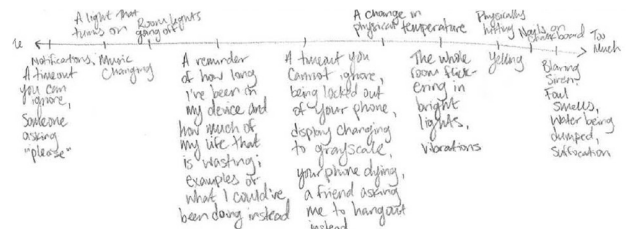 A light that
turns on
Room lights
going off
A change in
physical temperature
Physically
hitting
Nails on
chalkboard
Too
Much
Notifications,
A timeout
you can
ignore,
Someone
asking
"please"
Music
Changing
A reminder
of how long
I've been on
my device and
how much of
my life that
is wasting;
examples of
what I could've
been doing instead
A timeout you
cannot ignore,
being locked out
of your phone,
display changing
to grayscale,
your phone dying,
a friend asking
me to hangout
instead
The whole
room flick-
ering in
bright
lights,
vibrations
Yelling
Blaring
Siren,
Foul
smells,
Water being
dumped,
Suffocation